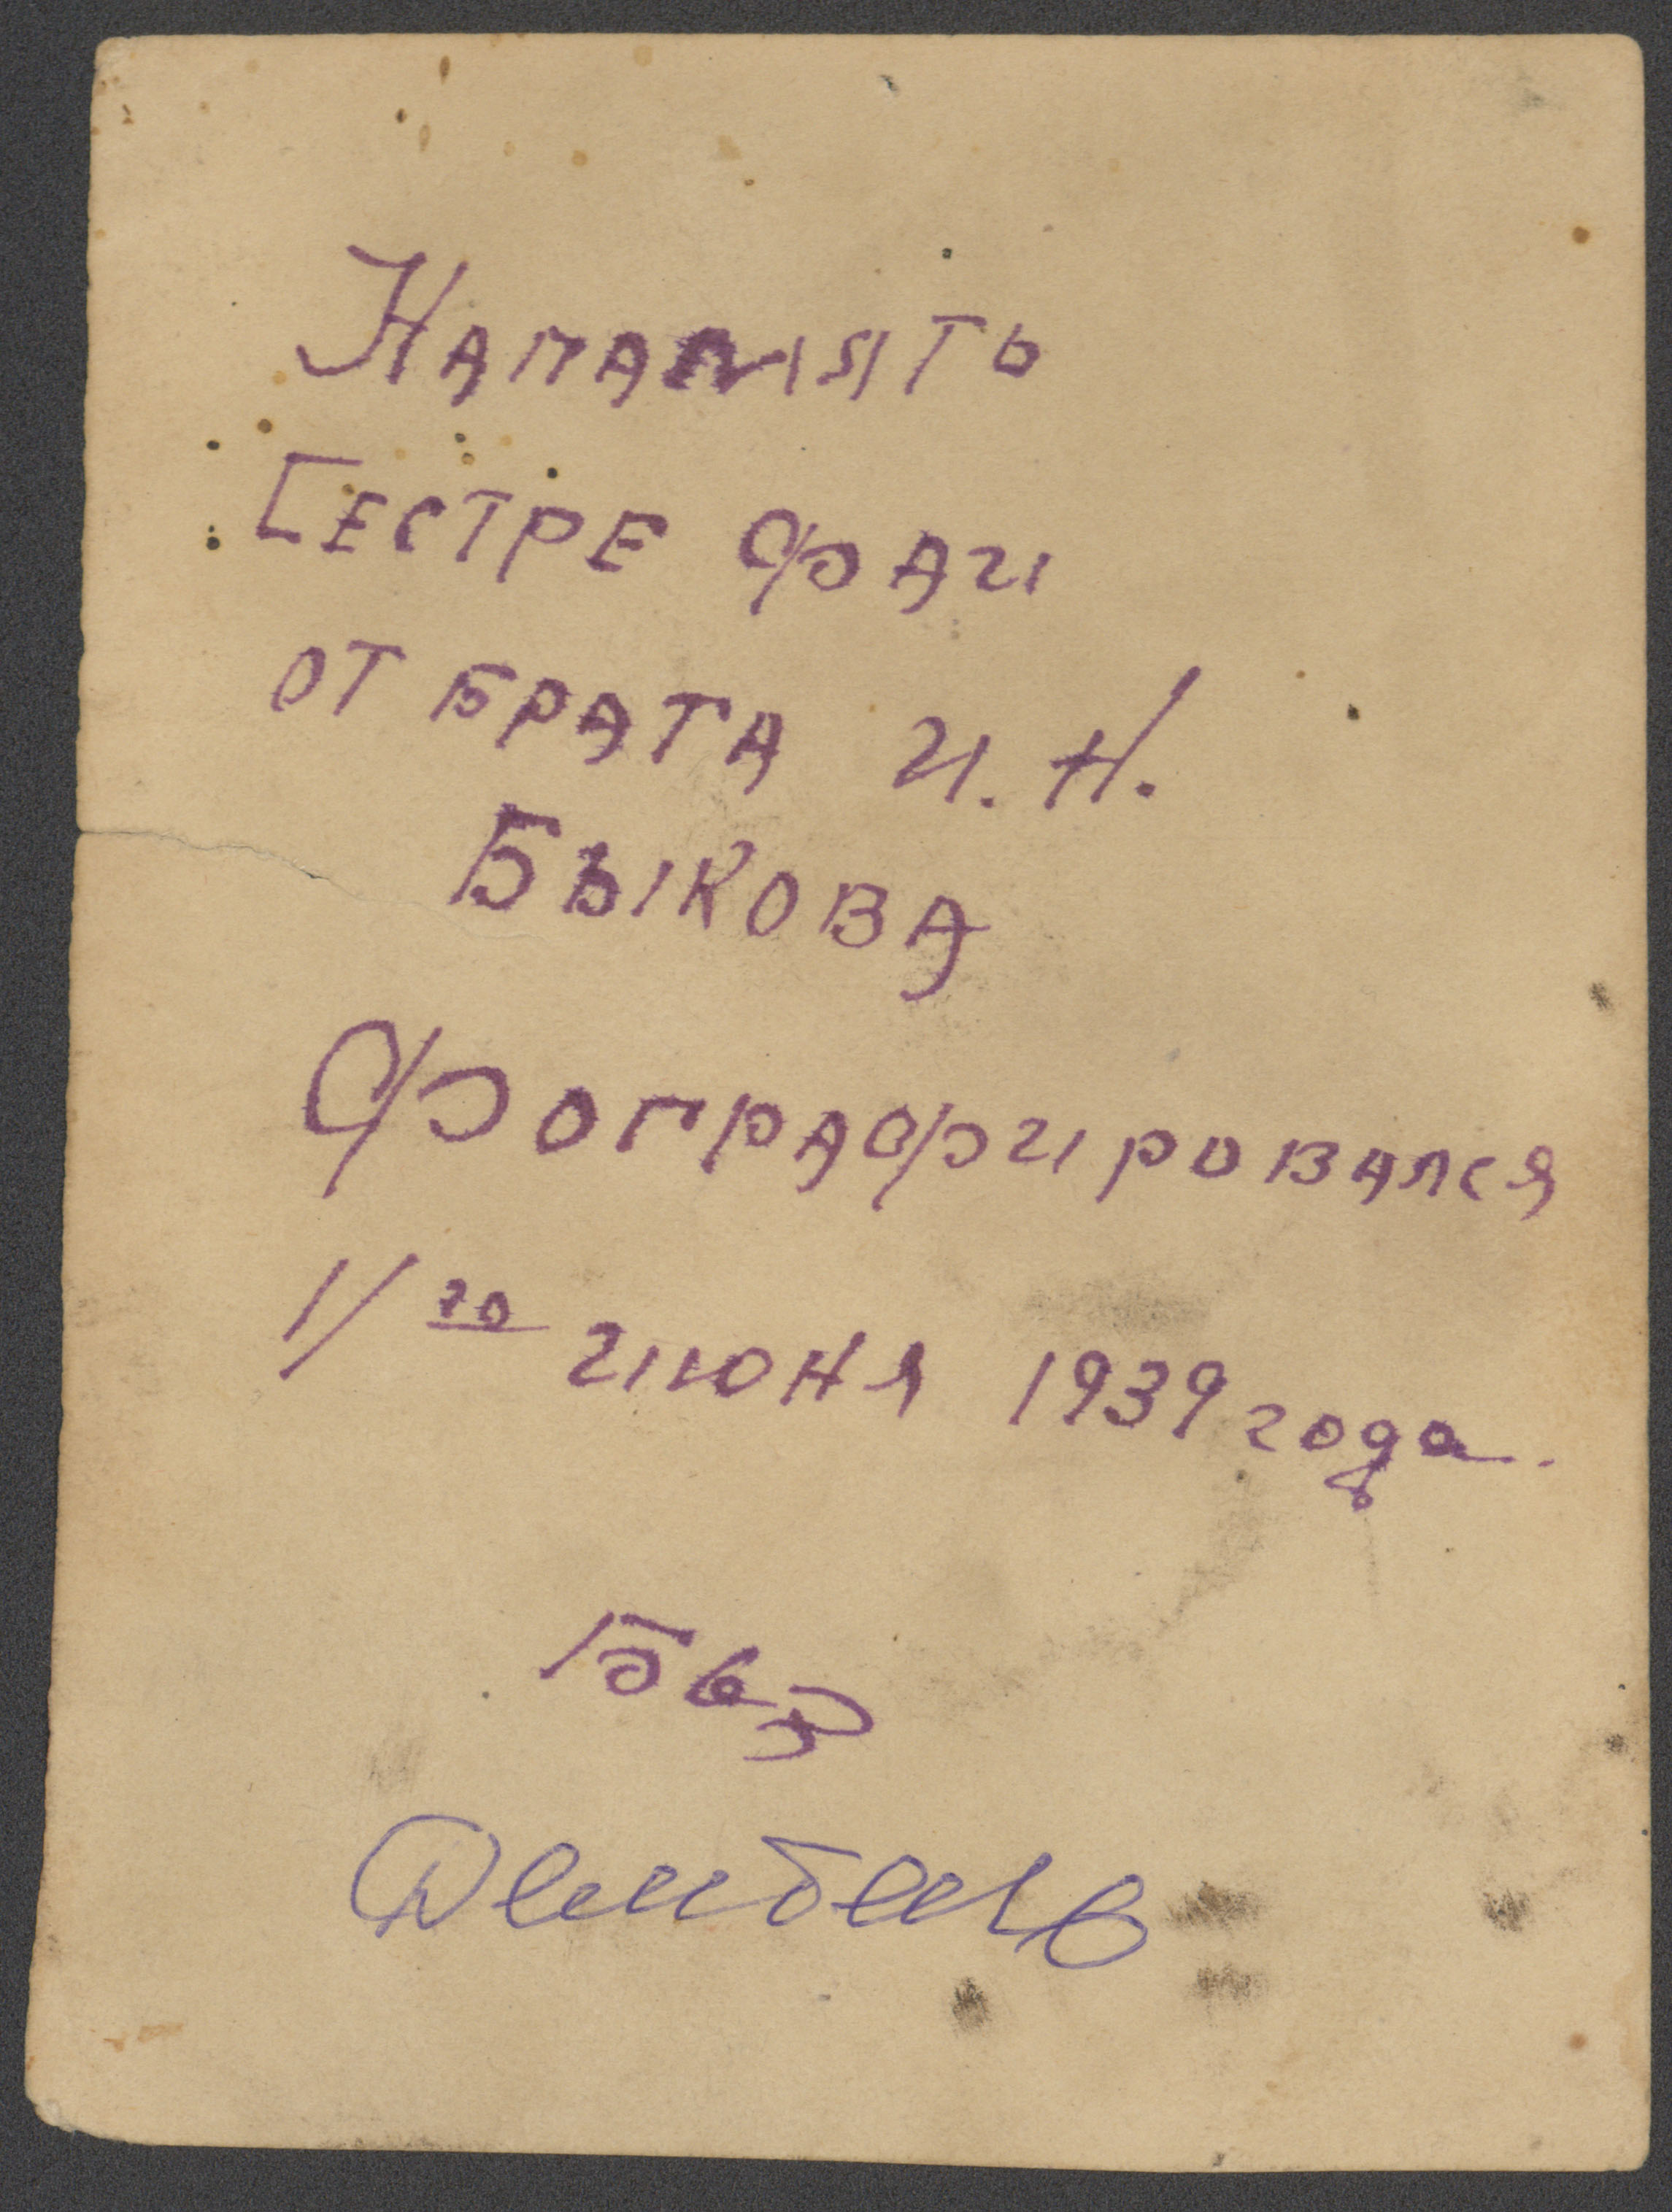 Напамять
Сестре Фаи
от брата И. Н.
Быкова
Фотграфировался
1/го июня 1939 года.